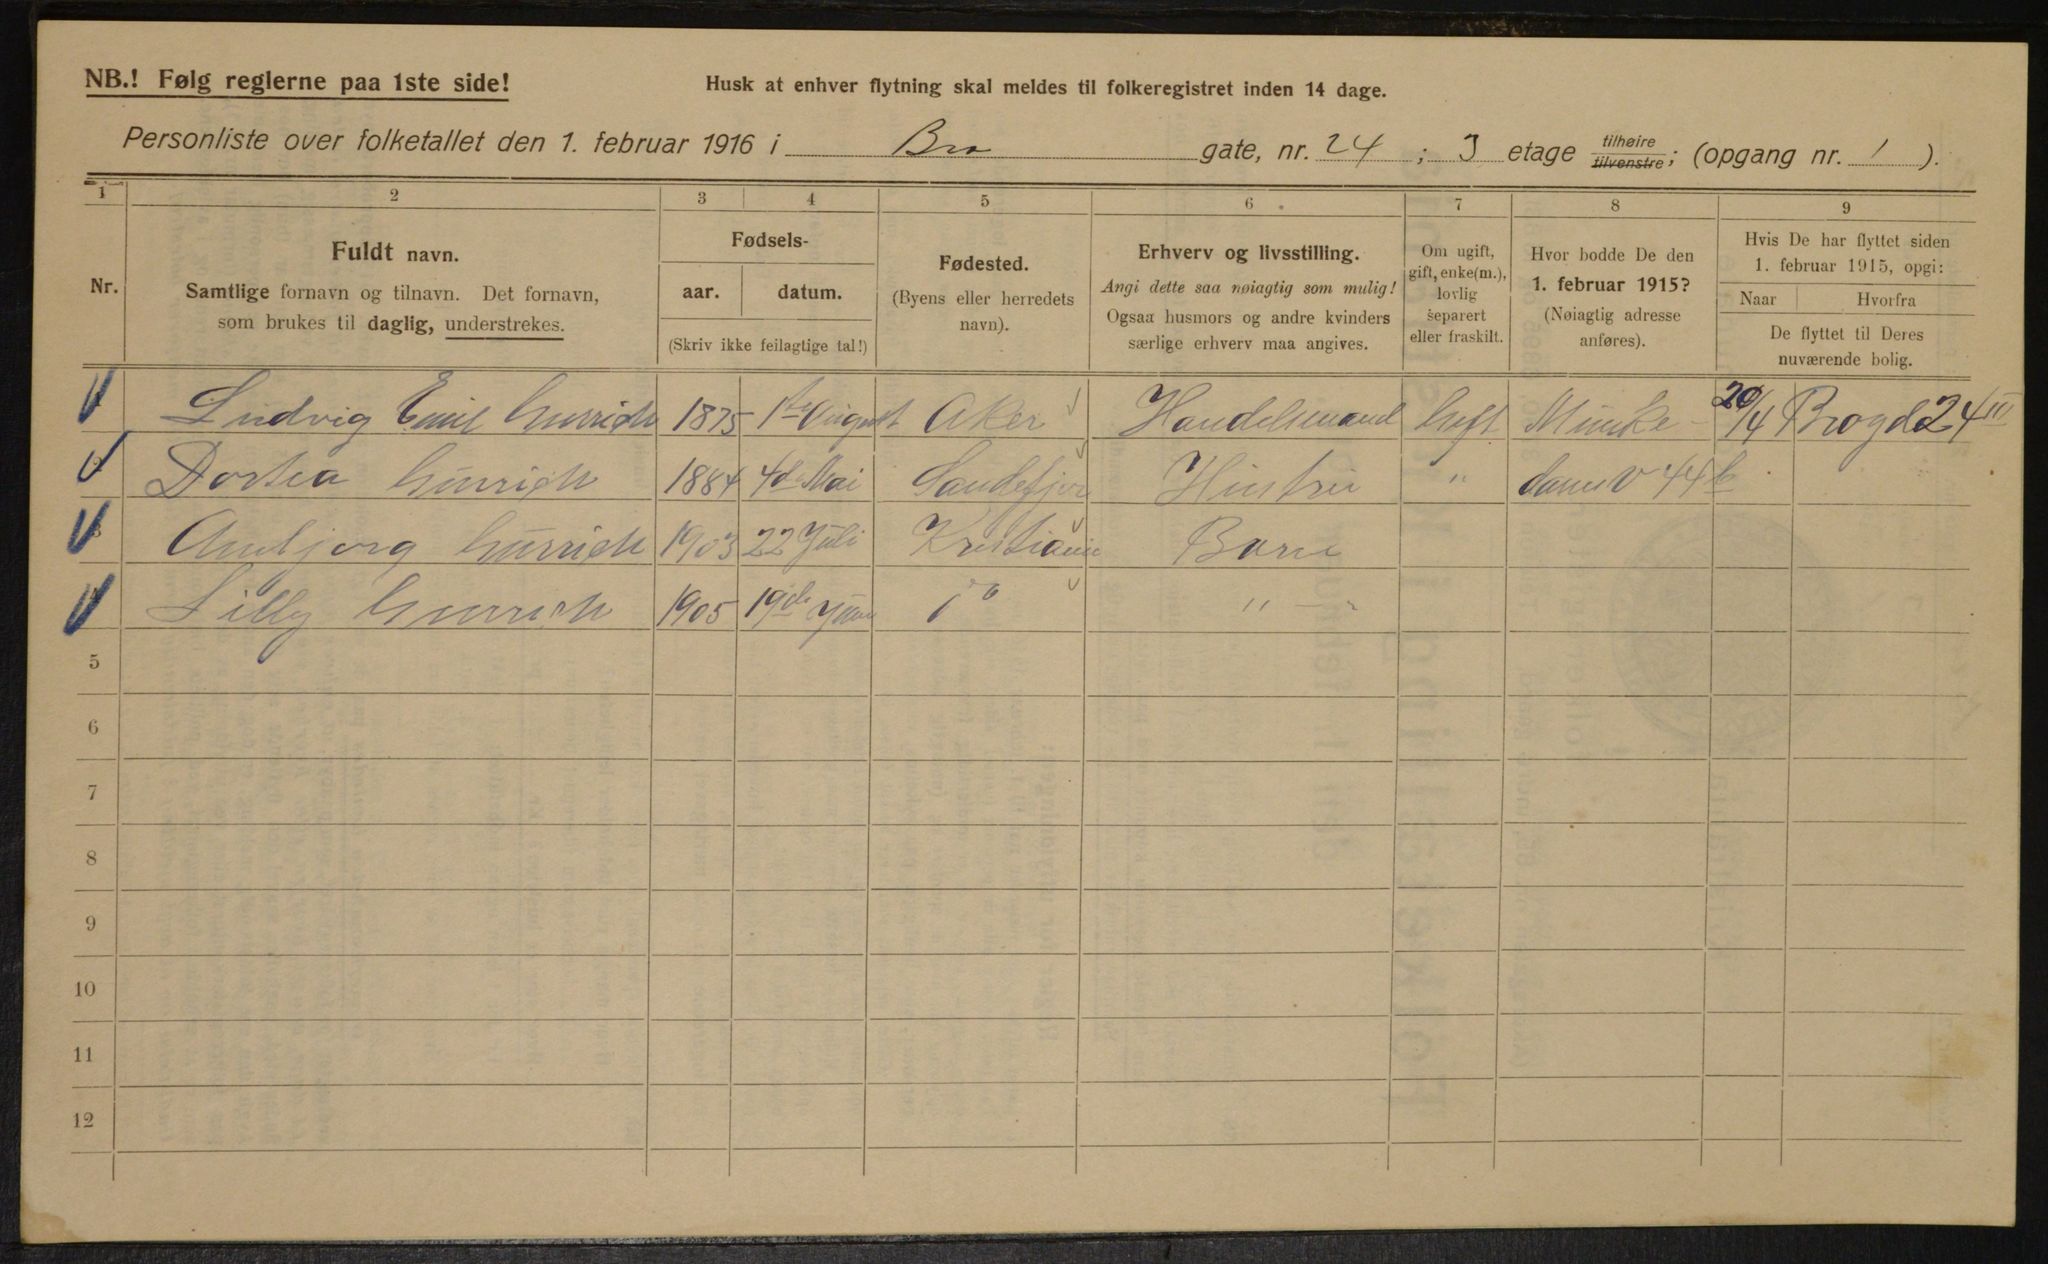 NB.! Følg reglerne paa 1ste side!
Husk at enhver flytning skal meldes til folkeregistret inden 14 dage.
Personliste over folketallet den 1. februar 1916 i Bro gate, nr. 24 ; 3 etage tilhøire tilvenstre; (opgang nr. 1 ).
1 2 3 4 5 6 7 8 9
Nr.
Fuldt navn.
Samtlige fornavn og tilnavn. Det fornavn,
som brukes til daglig, understrekes.
Fødsels-
aar. datum.
(Skriv ikke feilagtige tal!)
Fødested.
(Byens eller herredets
navn).
Erhverv og livsstilling.
Angi dette saa nøiagtig som mulig!
Ogsaa husmors og andre kvinders
særlige erhverv maa angives.
Om ugift,
gift, enke(m.),
lovlig
separert
eller fraskilt.
Hvor bodde De den
1. februar 1915?
(Nøiagtig adresse
anføres).
Hvis De har flyttet siden
1. februar 1915, opgi:
Naar Hvorfra
De flyttet til Deres
nuværende bolig.
Ludvig Emil 1875 1ste August Aker Handelsmand Munke- 20/4 Brogd 24 III
Dortea 1884 4de Mai Sandefjor Hustru " 44 b
3 1903 22 Juli Kristiania Barn
Lilly 1905 19de " - "
5
6
7
8
9
10
11
12